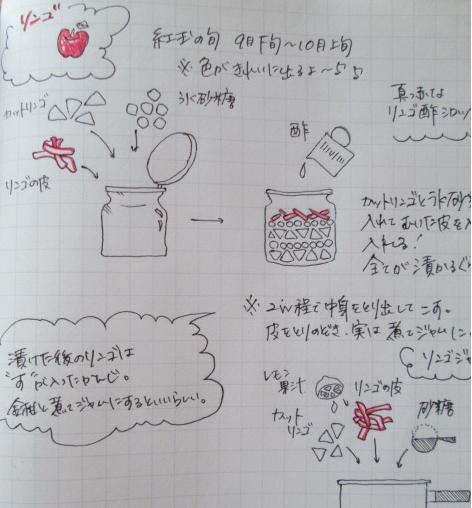 リンゴ
紅玉の旬 9月下旬〜10月上旬
※色がきれいに出るよ〜♪♪
カットリンゴ
氷砂糖
リンゴの皮
酢
真っ赤な
リンゴ酢シロッ
カットリンゴと
入れてむいた皮を入
入れる!
全てが漬かるぐ
※2w程で中身をとり出してこす。
皮をとりのぞき、実は煮てジャムに
リンゴジャ
漬けた後のリンゴは
"す"が入ったかんじ。
煮てジャムにするといいらしい。
レモン
果汁
リンゴの皮
カット
リンゴ
砂糖